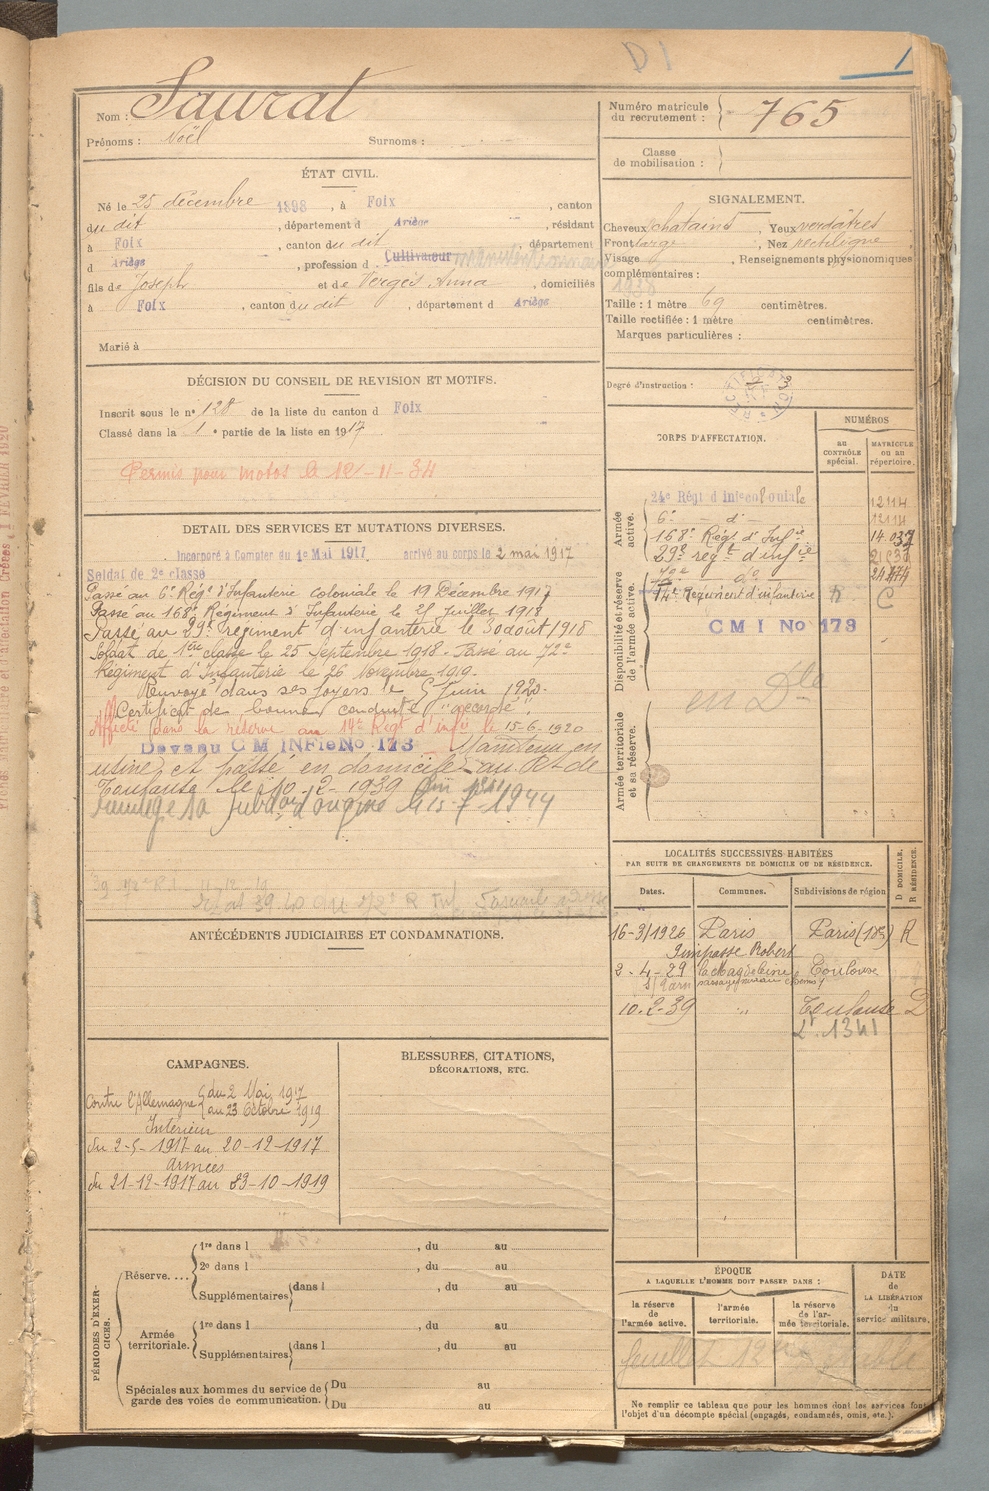 D1
1
Nom : Saurat
Prénoms : Noël Surnoms :
Numéro matricule du recrutement : 765
Classe de mobilisation :
ÉTAT CIVIL.
Né le 25 décembre 1898, à Foix, canton
du dit, département d Ariège, résidant
à Foix, canton du dit, département
d Ariège, profession d Cultivateur
fils de Joseph et de Vergès Anna, domiciliés
à Foix, canton du dit, département d Ariège
Marié à
SIGNALEMENT.
Cheveux chatains, Yeux verdâtres
Front large, Nez rectiligne
Visage , Renseignements physionomiques
complémentaires :
1938
Taille : 1 mètre 69 centimètres.
Taille rectifiée : 1 mètre centimètres.
Marques particulières :
Degré d'instruction : 3
DÉCISION DU CONSEIL DE REVISION ET MOTIFS.
Inscrit sous le n° 128 de la liste du canton d Foix
Classé dans la 1e partie de la liste en 1917
Permis pour motos le 12-11-34
DETAIL DES SERVICES ET MUTATIONS DIVERSES.
Incorporé à Compter du 1e Mai 1917, arrivé au corps le 2 mai 1917
Soldat de 2e classe
Passé au 6e Régt d'Infanterie coloniale le 19 Décembre 1917
Passé au 168e Régiment d'Infanterie le 25 Juillet 1918
Passé au 29e régiment d'infanterie le 30 août 1918
Soldat de 1ère classe le 25 Septembre 1918. Passé au 72e
Régiment d'Infanterie le 26 Novembre 1919.
Renvoyé dans ses foyers le 5 Juin 1920.
Certificat de bonne conduite "accordé".
Affecté dans la réserve au 14e Régt d'infie le 15-6-1920
Devenu C M INFie No 173 Maintenu en
usine et passé en domicile au Rt de
Toulouse le 10-2-1939
CORPS D'AFFECTATION.
NUMÉROS
au CONTRÔLE spécial.
MATRICULE ou au répertoire.
Armée active.
24e Régt d'Infie coloniale 12114
6e d° 12114
168e Régt d'Infie 14.037
29e régt d'infie
72e d° 24474
Disponibilité et réserve de l'armée active.
14e Régiment d'infanterie
C M I No 173
en Dle
Armée territoriale et sa réserve.
LOCALITÉS SUCCESSIVES HABITÉES
PAR SUITE DE CHANGEMENTS DE DOMICILE OU DE RÉSIDENCE.
Dates. Communes. Subdivisions de région D DOMICILE. R RÉSIDENCE.
16-3-1926 Paris Paris (18e) R
Impasse Robert
2-4-29 Toulouse
10-2-39 " Toulouse D
ANTÉCÉDENTS JUDICIAIRES ET CONDAMNATIONS.
CAMPAGNES.
Contre l'Allemagne du 2 Mai 1917
au 23 Octobre 1919
Intérieur
du 2-5-1917 au 20-12-1917
Armées
du 21-12-1917 au 23-10-1919
BLESSURES, CITATIONS,
DÉCORATIONS, ETC.
PÉRIODES D'EXERCICES.
Réserve....
1re dans l , du au
2e dans l , du au
Supplémentaires dans l , du au
Armée territoriale.
1re dans l , du au
Supplémentaires dans l , du au
Spéciales aux hommes du service de garde des voies de communication.
Du au
Du au
ÉPOQUE
A LAQUELLE L'HOMME DOIT PASSER DANS :
la réserve de l'armée active.
l'armée territoriale.
la réserve de l'armée territoriale.
DATE de LA LIBÉRATION du service militaire.
Ne remplir ce tableau que pour les hommes dont les services font
l'objet d'un décompte spécial (engagés, condamnés, omis, etc.).